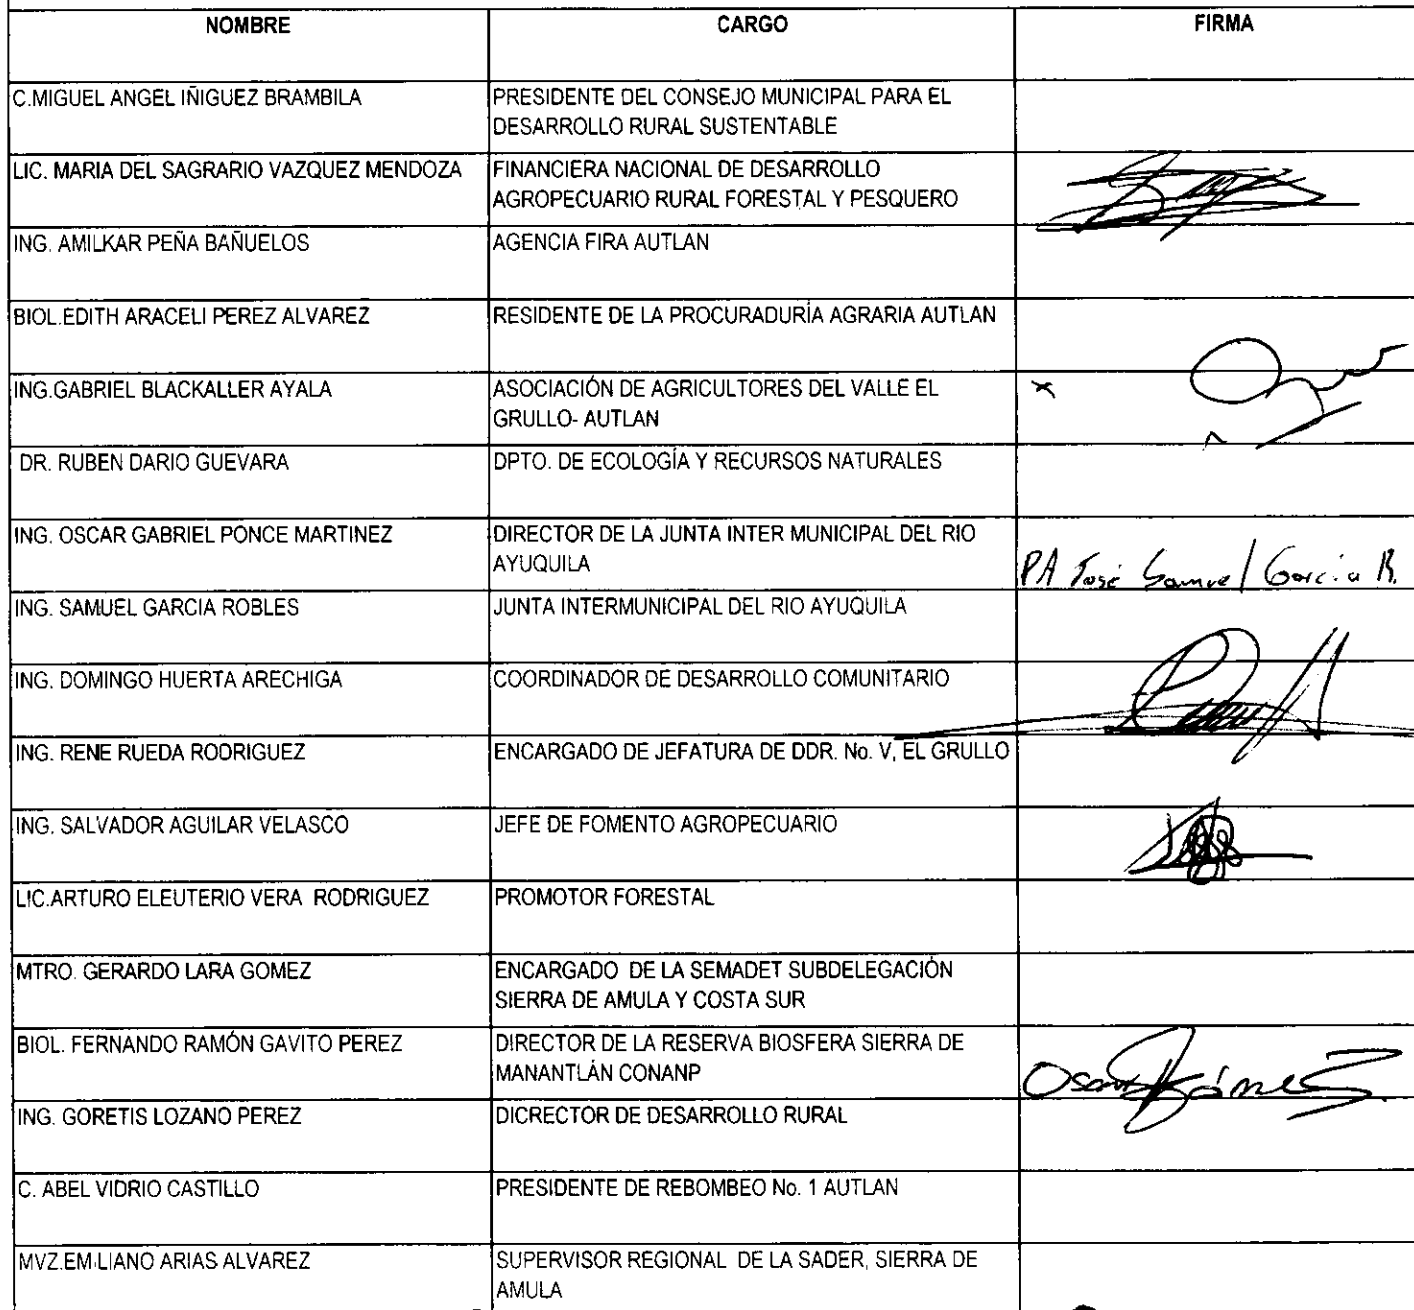 NOMBRE CARGO FIRMA
C.MIGUEL ANGEL IÑIGUEZ BRAMBILA PRESIDENTE DEL CONSEJO MUNICIPAL PARA EL
DESARROLLO RURAL SUSTENTABLE
LIC. MARIA DEL SAGRARIO VAZQUEZ MENDOZA FINANCIERA NACIONAL DE DESARROLLO
AGROPECUARIO RURAL FORESTAL Y PESQUERO
ING. AMILKAR PEÑA BAÑUELOS AGENCIA FIRA AUTLAN
BIOL.EDITH ARACELI PEREZ ALVAREZ RESIDENTE DE LA PROCURADURÍA AGRARIA AUTLAN
ING.GABRIEL BLACKALLER AYALA ASOCIACIÓN DE AGRICULTORES DEL VALLE EL
GRULLO- AUTLAN
DR. RUBEN DARIO GUEVARA DPTO. DE ECOLOGÍA Y RECURSOS NATURALES
ING. OSCAR GABRIEL PONCE MARTINEZ DIRECTOR DE LA JUNTA INTER MUNICIPAL DEL RIO
AYUQUILA PA José Samuel García R.
ING. SAMUEL GARCIA ROBLES JUNTA INTERMUNICIPAL DEL RIO AYUQUILA
ING. DOMINGO HUERTA ARECHIGA COORDINADOR DE DESARROLLO COMUNITARIO
ING. RENE RUEDA RODRIGUEZ ENCARGADO DE JEFATURA DE DDR. No. V, EL GRULLO
ING. SALVADOR AGUILAR VELASCO JEFE DE FOMENTO AGROPECUARIO
LIC.ARTURO ELEUTERIO VERA RODRIGUEZ PROMOTOR FORESTAL
MTRO. GERARDO LARA GOMEZ ENCARGADO DE LA SEMADET SUBDELEGACIÓN
SIERRA DE AMULA Y COSTA SUR
BIOL. FERNANDO RAMÓN GAVITO PEREZ DIRECTOR DE LA RESERVA BIOSFERA SIERRA DE
MANANTLÁN CONANP
ING. GORETIS LOZANO PEREZ DICRECTOR DE DESARROLLO RURAL
C. ABEL VIDRIO CASTILLO PRESIDENTE DE REBOMBEO No. 1 AUTLAN
MVZ.EMILIANO ARIAS ALVAREZ SUPERVISOR REGIONAL DE LA SADER, SIERRA DE
AMULA